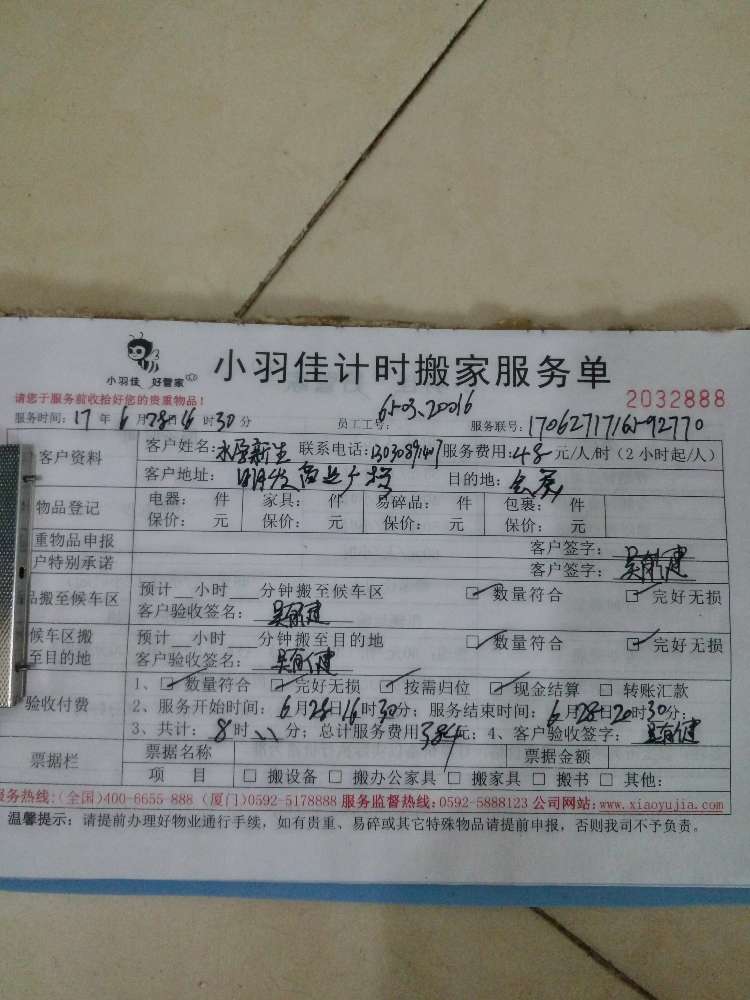 小羽佳 好管家
小羽佳计时搬家服务单
2032888
请您于服务前收拾好您的贵重物品！
服务时间：17年6月28日16时30分 员工工号： 服务联号：
客户资料 客户姓名： 联系电话： 服务费用：48元/人/时（2小时起/人）
客户地址： 目的地：
物品登记 电器： 件 家具： 件 易碎品： 件 包裹： 件
保价： 元 保价： 元 保价： 元 保价： 元
重物品申报 客户签字：
户特别承诺 客户签字：
品搬至候车区 预计 小时 分钟搬至候车区 ☑ 数量符合 ☑ 完好无损
客户验收签名：
候车区搬 预计 小时 分钟搬至目的地 ☑ 数量符合 ☑ 完好无损
至目的地 客户验收签名：
验收付费 1、☑ 数量符合 ☑ 完好无损 ☑ 按需归位 ☑ 现金结算 □ 转账汇款
2、服务开始时间：6月28日16时30分；服务结束时间：6月28日20时30分；
3、共计：8时 分；总计服务费用384元；4、客户验收签字：
票据栏 票据名称 票据金额
项 目 □ 搬设备 □ 搬办公家具 □ 搬家具 □ 搬书 □ 其他：
服务热线：(全国)400-6655 888 (厦门)0592-5178888 服务监督热线：0592-5888123 公司网站：www.xiaoyujia.com
温馨提示：请提前办理好物业通行手续，如有贵重、易碎或其它特殊物品请提前申报，否则我司不予负责。